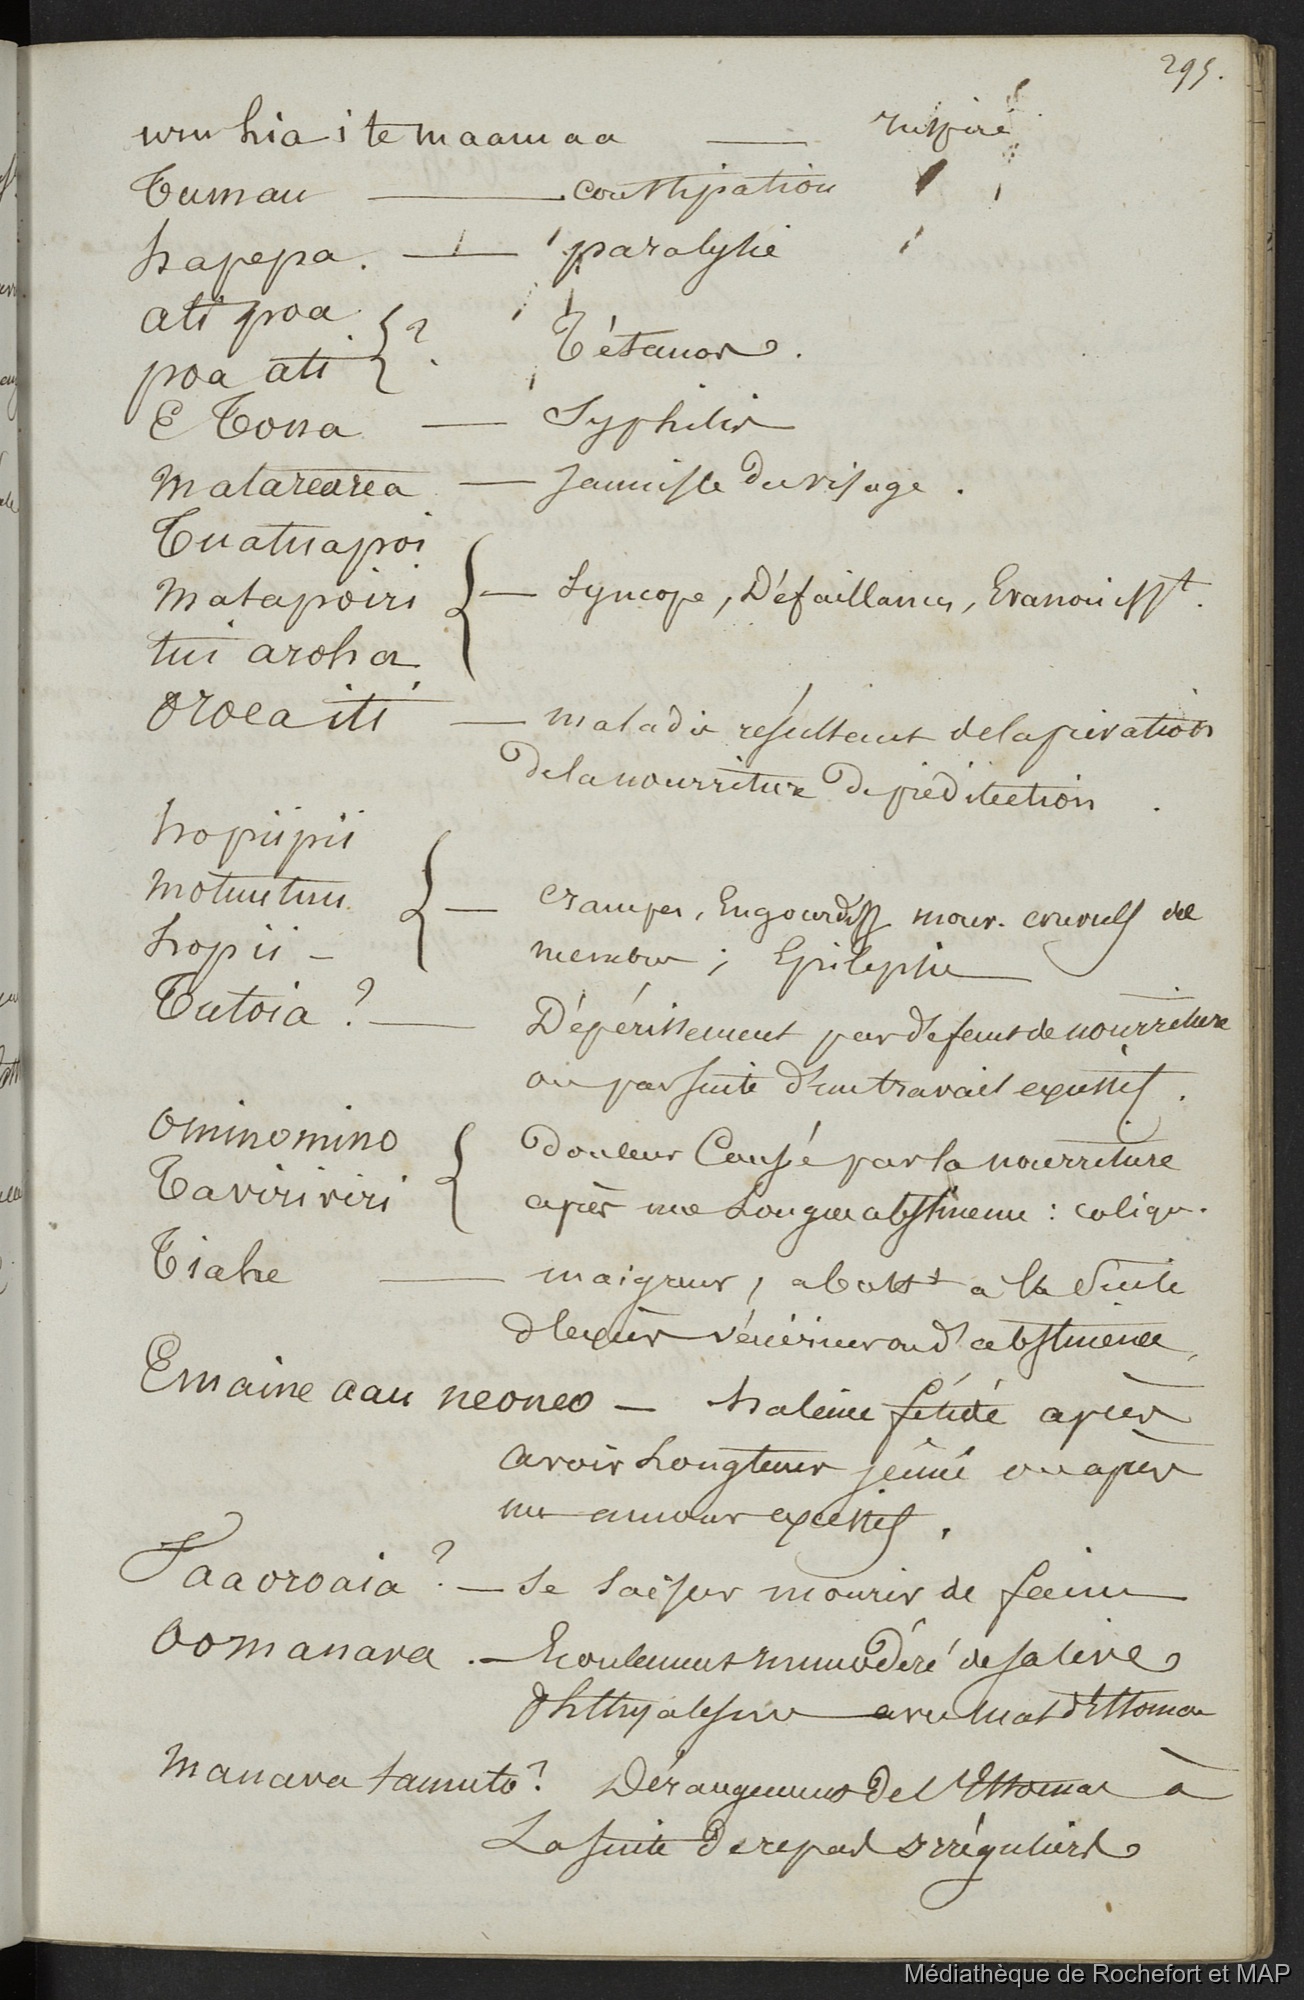 295.
uruhia i te maamaa — respire
Tumau — constipation
hapepa. — paralysie
ati poa
poa ati } ? Tétanos.
E Tona — Syphilis
Matarearea — Jaunisse du visage.
Tuatuapoi
Matapoiri } — Syncope, Défaillances, Evanouisst.
tui aroha
oroea iti — maladie résultant de la privation
de la nourriture de prédilection.
hopiipii
motuutuu } — crampes, Engourdiss mouv. convuls des
hopii — membres ; Epilepsie
Tutoia ? — Dépérissement par défaut de nourriture
ou par suite d'un travail excessif.
Ominomino } Douleur Causée par la nourriture
Taviriviri après une Longue abstinence : colique.
Tiahe — maigreur, abattt à la suite
d'excès vénériens ou d'abstinence,
Emaine aau neoneo — haleine fétide après
avoir Longtems jeûné ou après
un amour excessif.
Faaoroaia ? — Se laisser mourir de faim
Oomanava. — Ecoulement immodéré de salive
Phthyalisme avec mal d'Estomac
Manava tamuto ? Dérangement de l'Estomac à
La suite de repas irréguliers
Médiathèque de Rochefort et MAP